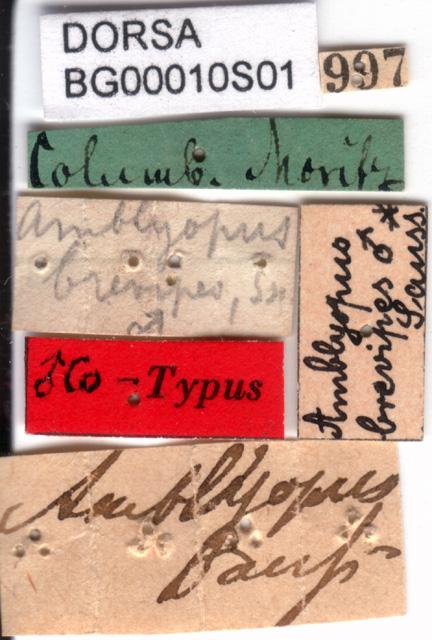 DORSA
BG00010S01
997
Columb. Moritz
Amblyopus
brevipes, Sss
♂
Amblyopus
brevipes ♂ *
Sauss.
♂ Co - Typus
Amblyopus
Sauss